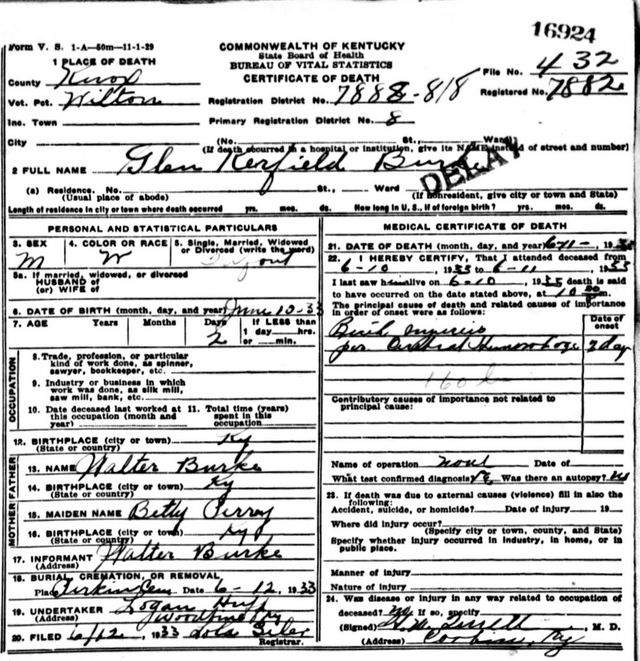 16924
Form V. S. 1-A—50m—11-1-29
COMMONWEALTH OF KENTUCKY
State Board of Health
BUREAU OF VITAL STATISTICS
CERTIFICATE OF DEATH
File No. 432
Registered No. 7882
1 PLACE OF DEATH
County Knox
Vot. Pct. Wilton
Registration District No. 7888-818
Inc. Town
Primary Registration District No. 8
City (No. St., Ward)
(If death occurred in a hospital or institution, give its NAME instead of street and number)
2 FULL NAME Glen Kerfield
DELAY
(a) Residence. No. St., Ward
(Usual place of abode) (If nonresident, give city or town and State)
Length of residence in city or town where death occurred yrs. mos. ds. How long in U. S., if of foreign birth? yrs. mos. ds.
PERSONAL AND STATISTICAL PARTICULARS
3. SEX 4. COLOR OR RACE 5. Single, Married, Widowed or Divorced (write the word)
M W
5a. If married, widowed, or divorced
HUSBAND of
(or) WIFE of
6. DATE OF BIRTH (month, day, and year) June 10-33
7. AGE Years Months Days If LESS than
2 1 day hrs.
or min.
OCCUPATION
8. Trade, profession, or particular
kind of work done, as spinner,
sawyer, bookkeeper, etc.
9. Industry or business in which
work was done, as silk mill,
saw mill, bank, etc.
10. Date deceased last worked at 11. Total time (years)
this occupation (month and spent in this
year) occupation
12. BIRTHPLACE (city or town) Ky
(State or country)
FATHER
13. NAME Walter Burke
14. BIRTHPLACE (city or town) Ky
(State or country)
MOTHER
15. MAIDEN NAME Betty Perry
16. BIRTHPLACE (city or town) Ky
(State or country)
17. INFORMANT Walter Burke
(Address)
18. BURIAL, CREMATION, OR REMOVAL
Place Date 6-12, 1933
19. UNDERTAKER Logan
(Address)
20. FILED 6/12, 1933 Lola Siler
Registrar.
MEDICAL CERTIFICATE OF DEATH
21. DATE OF DEATH (month, day, and year) 6-11-, 1933
22. I HEREBY CERTIFY, That I attended deceased from
6-10, 1933 to 6-11, 1933
I last saw h alive on 6-10, 1933 death is said
to have occurred on the date stated above, at 10 m.
The principal cause of death and related causes of importance
in order of onset were as follows:
Date of
onset
Birth
Cerebral Hemorrhage 2 day
Contributory causes of importance not related to
principal cause:
Name of operation none Date of
What test confirmed diagnosis? Was there an autopsy?
23. If death was due to external causes (violence) fill in also the
following:
Accident, suicide, or homicide? Date of injury 19
Where did injury occur?
(Specify city or town, county, and State)
Specify whether injury occurred in industry, in home, or in
public place.
Manner of injury
Nature of injury
24. Was disease or injury in any way related to occupation of
deceased? no If so, specify
(Signed) M. D.
(Address) Corbin, Ky